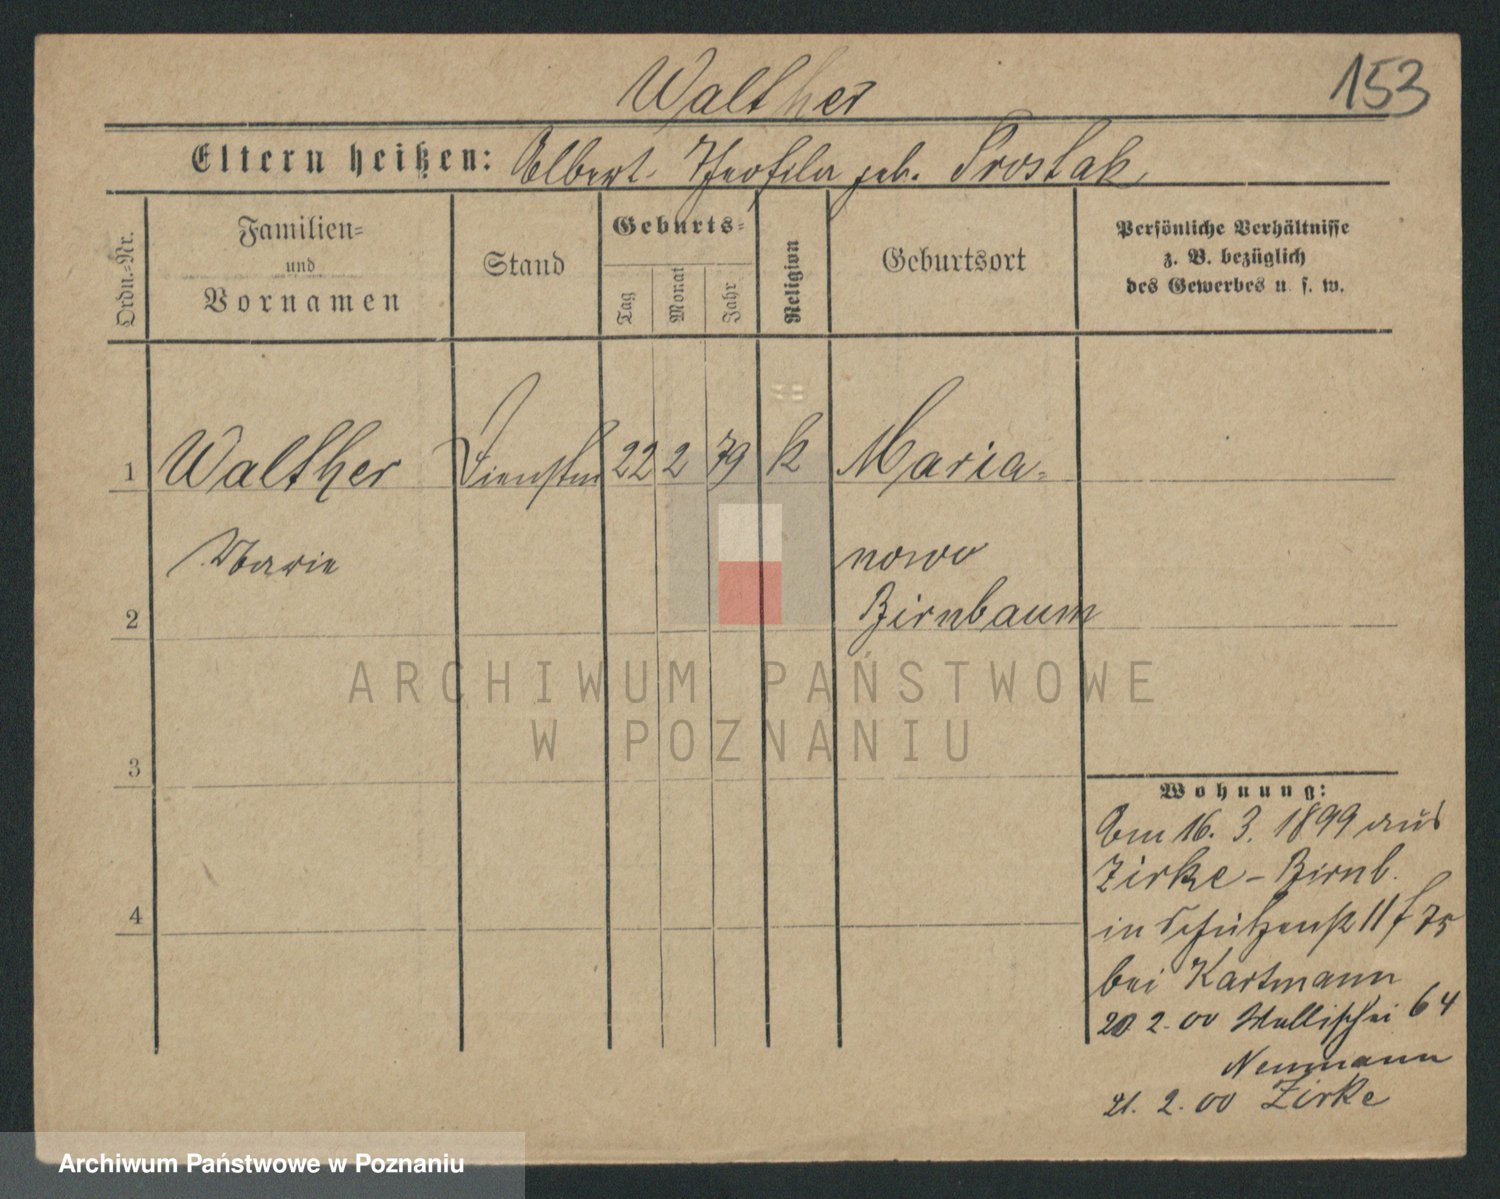 Walther
153
Eltern heißen: Albert. Theofila geb. Prostak
Ordn.-Nr.
Familien-
und
Vornamen
Stand
Geburts-
Tag
Monat
Jahr
Religion
Geburtsort
Persönliche Verhältnisse
z. B. bezüglich
des Gewerbes u. s. w.
1 Walther Dienstm 22 2 79 k Maria-
Marie nowo
2 Birnbaum
3
4
Wohnung:
Am 16. 3. 1899 aus
Zirke - Birnb.
in Schützenstr 11
bei Kartmann
20. 2. 00 Wallischei 64
Neumann
21. 2. 00 Zirke
ARCHIWUM PAŃSTWOWE
W POZNANIU
Archiwum Państwowe w Poznaniu